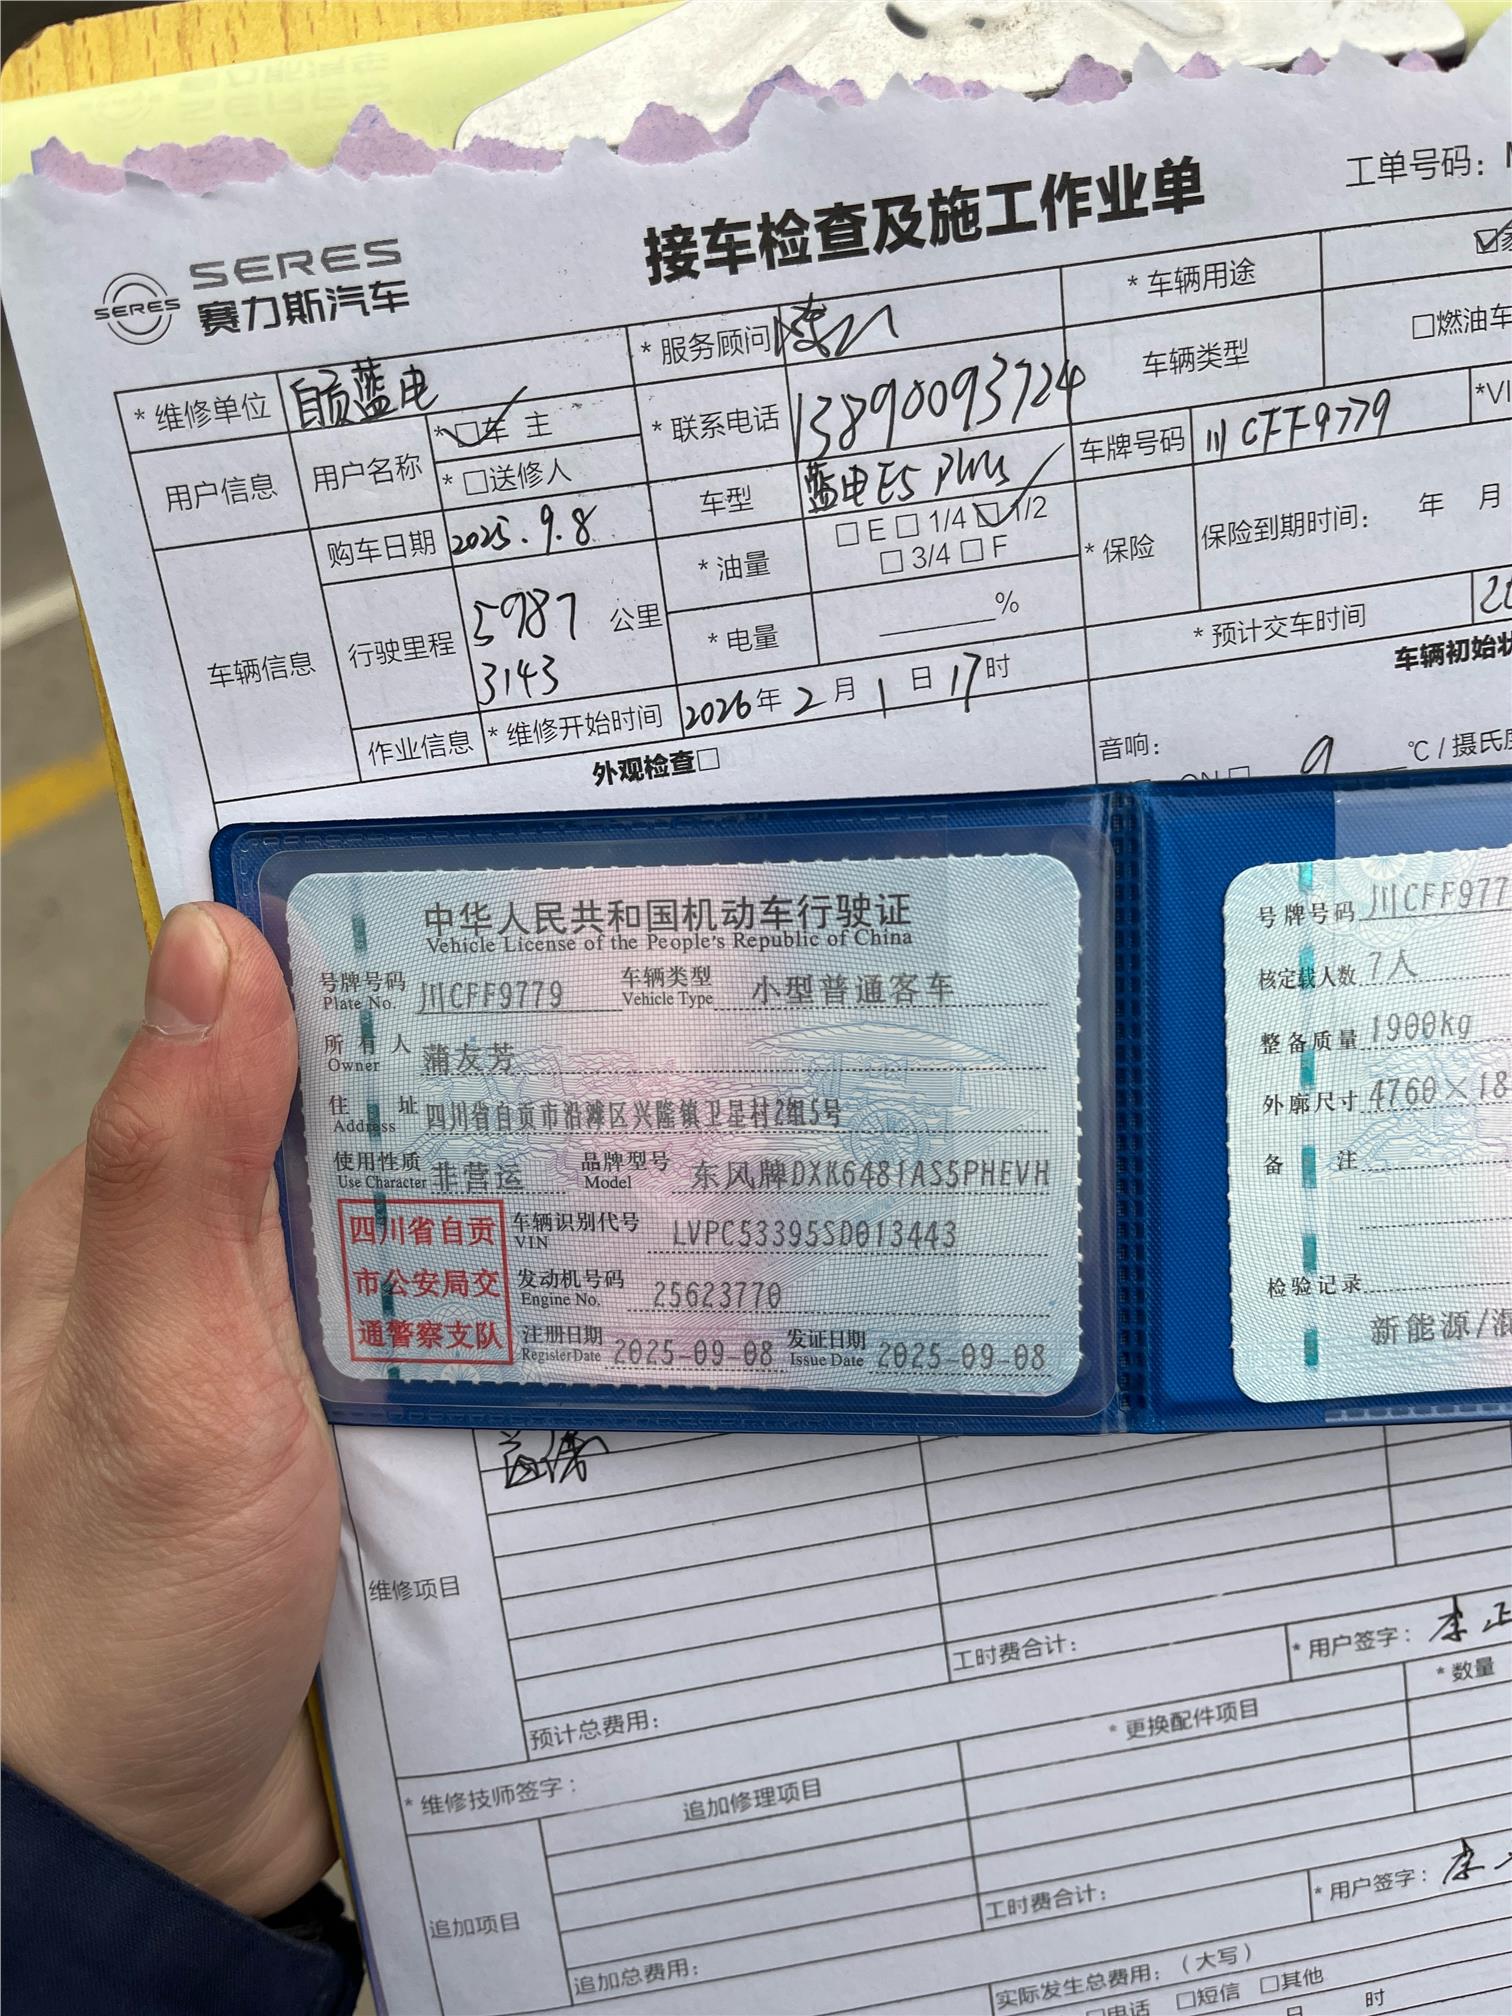 SERES
赛力斯汽车
SERES
接车检查及施工作业单
工单号码：
* 维修单位 自贡蓝电
* 服务顾问
* 车辆用途
用户信息 用户名称 * □车 主
* □送修人
* 联系电话 13890093724
车辆类型 □燃油车
车型 蓝电E5 PLUS
车牌号码 川CFF9779
*VI
车辆信息 购车日期 2025.9.8
* 油量 □ E □ 1/4 ☑ 1/2
□ 3/4 □ F
* 保险 保险到期时间： 年 月
行驶里程 5987 公里
3143
* 电量 %
* 预计交车时间
作业信息 * 维修开始时间 2026年 2 月 1 日 17时
车辆初始状
外观检查□
音响： 9 ℃ / 摄氏度
ON □
中华人民共和国机动车行驶证
Vehicle License of the People's Republic of China
号牌号码 川CFF9779 车辆类型 小型普通客车
Plate No. Vehicle Type
所有人 蒲友芳
Owner
住址 四川省自贡市沿滩区兴隆镇卫星村2组5号
Address
使用性质 非营运 品牌型号 东风牌DXK6481AS5PHEVH
Use Character Model
四川省自贡
市公安局交
通警察支队
车辆识别代号 LVPC53395SD013443
VIN
发动机号码 25623770
Engine No.
注册日期 2025-09-08 发证日期 2025-09-08
Register Date Issue Date
号牌号码 川CFF977
核定载人数 7人
整备质量 1900kg
外廓尺寸 4760×18
备注
检验记录
新能源/
维修项目
工时费合计：
* 用户签字： 李正
预计总费用：
* 更换配件项目
* 数量
* 维修技师签字：
追加修理项目
追加项目
工时费合计：
* 用户签字： 李
追加总费用：
实际发生总费用：（大写）
□电话 □短信 □其他
日 时